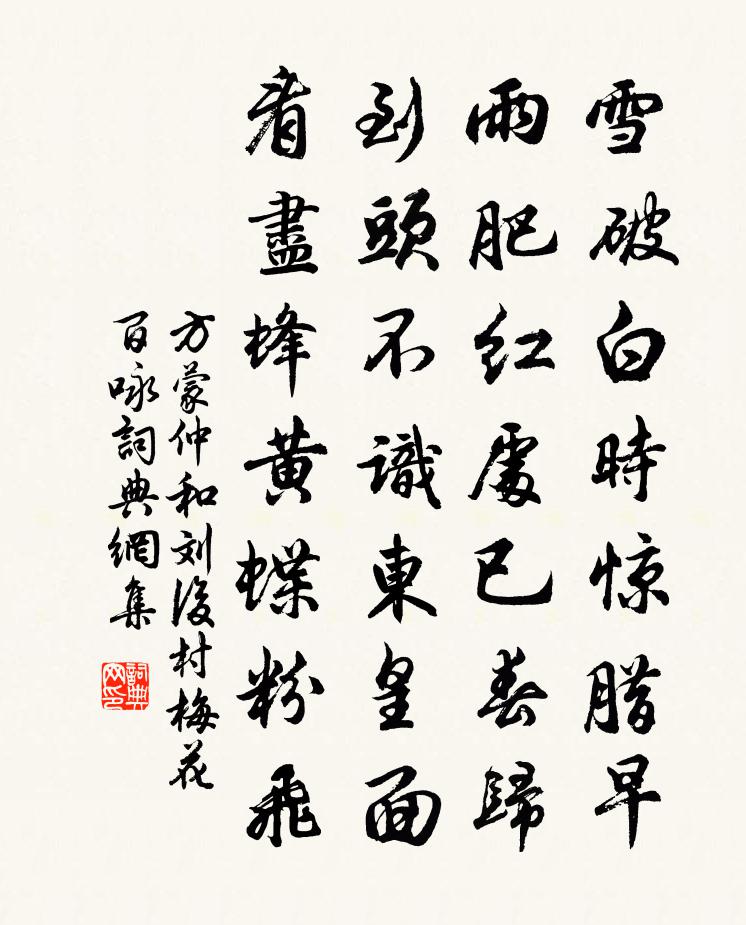 雪破白時惊腊早
雨肥红處已春歸
到頭不識東皇面
看盡蜂黄蝶粉飛
方蒙仲和刘後村梅花
百咏詞典網集
詞典网印